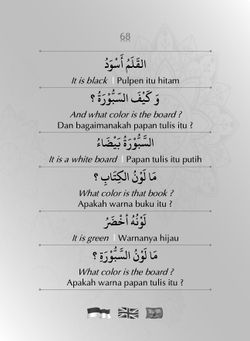 68
القَلَمُ أَسْوَدُ
It is black | Pulpen itu hitam
وَ كَيْفَ السَّبُّوْرَةُ ؟
And what color is the board ?
Dan bagaimanakah papan tulis itu ?
السَّبُّوْرَةُ بَيْضَاءُ
It is a white board | Papan tulis itu putih
مَا لَوْنُ الكِتَابِ ؟
What color is that book ?
Apakah warna buku itu ?
لَوْنُهُ أَخْضَرُ
It is green | Warnanya hijau
مَا لَوْنُ السَّبُّوْرَةِ ؟
What color is the board ?
Apakah warna papan tulis itu ?